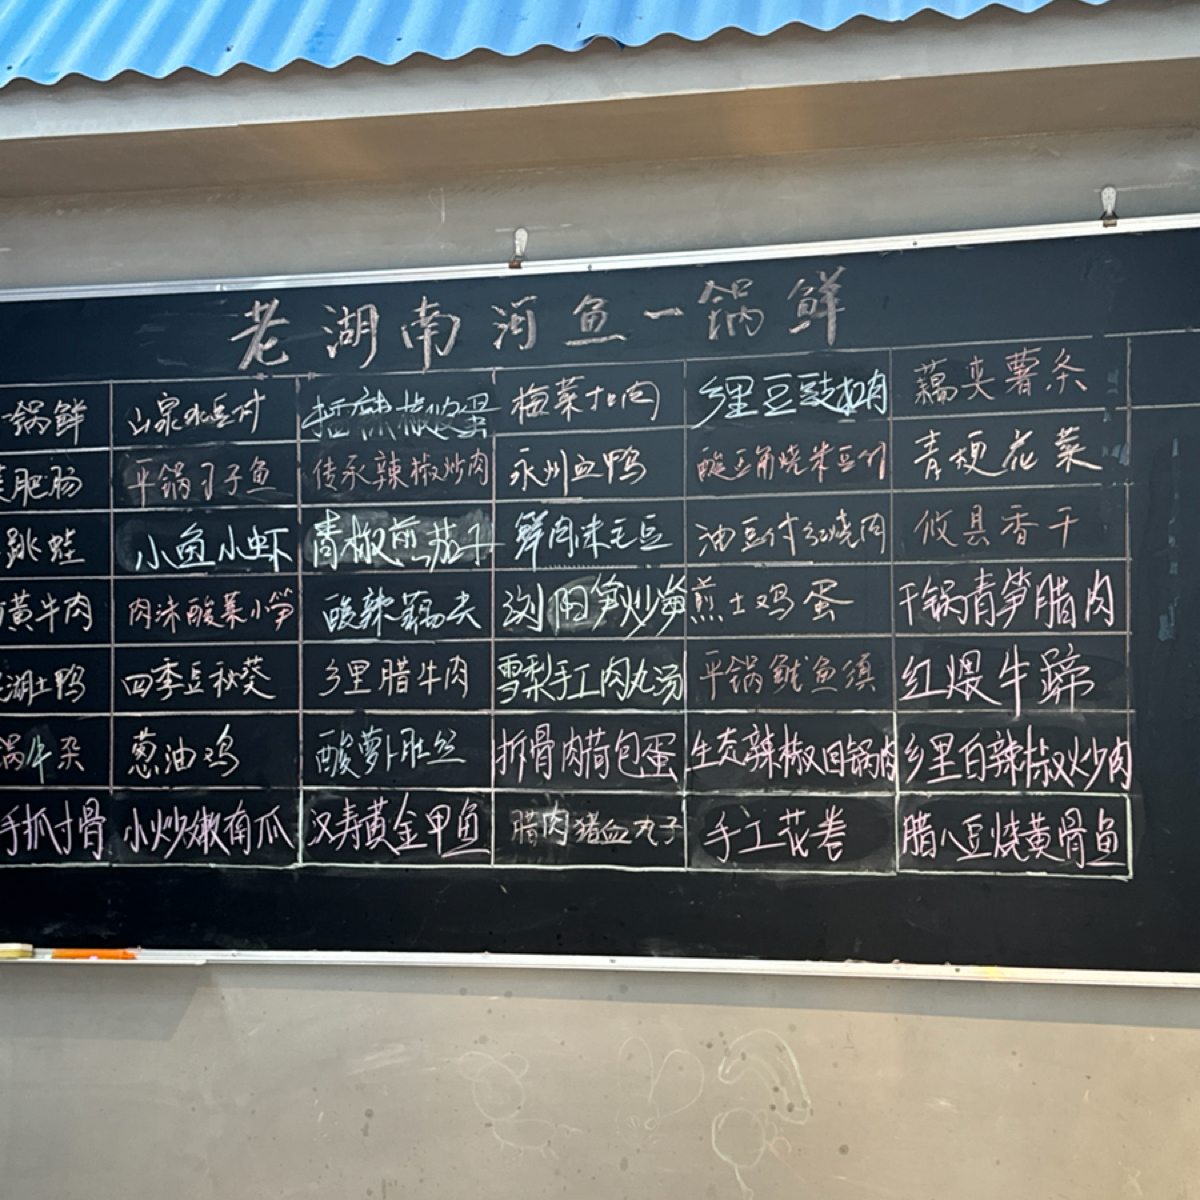 老湖南河鱼一锅鲜
锅鲜 山泉水豆付 擂辣椒皮蛋 梅菜扣肉 乡里豆豉扣肉 藕夹薯条
肥肠 平锅刁子鱼 传承辣椒炒肉 永州血鸭 酸豆角烧米豆付 青梗花菜
跳蛙 小鱼小虾 青椒煎茄子 鲜肉米毛豆 油豆付红烧肉 攸县香干
黄牛肉 肉沫酸菜小笋 酸辣藕尖 浏阳笋炒笋 煎土鸡蛋 干锅青笋腊肉
湖土鸭 四季豆秋葵 乡里腊牛肉 雪梨手工肉丸汤 平锅鱿鱼须 红煨牛蹄
锅牛杂 葱油鸡 酸萝卜肚丝 拆骨肉荷包蛋 生态辣椒回锅肉 乡里白辣椒炒肉
手抓寸骨 小炒嫩南瓜 汉寿黄金甲鱼 腊肉猪血丸子 手工花卷 腊八豆烧黄骨鱼